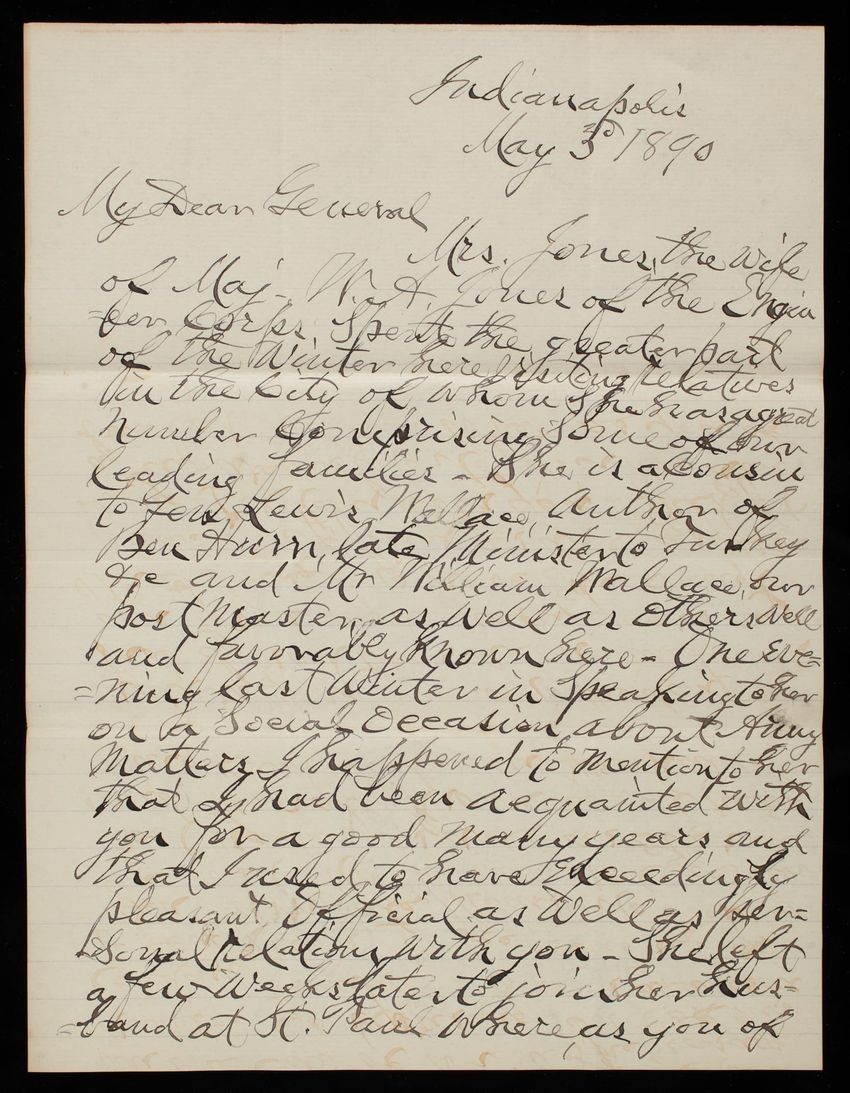 Indianapolis
May 3rd 1890
My Dear General
Mrs. Jones, the Wife
of Maj. W. A. Jones of the Engin
=eer Corps, Spent the greater part
of the Winter here visiting relatives
in the City of whom She has a great
number Comprising Some of our
leading families - She is a Cousin
to Genl Lewis Wallace, Author of
Ben Hurr, late Minister to Turkey
&c and Mr William Wallace, our
post Master, as well as others well
and favorably Known here - One Eve=
=ning last Winter in Speaking to her
on a Social Occasion about Army
Matters, I happened to mention to her
that I had been acquainted with
you for a good many years and
that I used to have Exceedingly
pleasant Official as Well as per=
=sonal relations with you - She left
a few Weeks later to join her hus=
=band at St. Paul Where, as you of